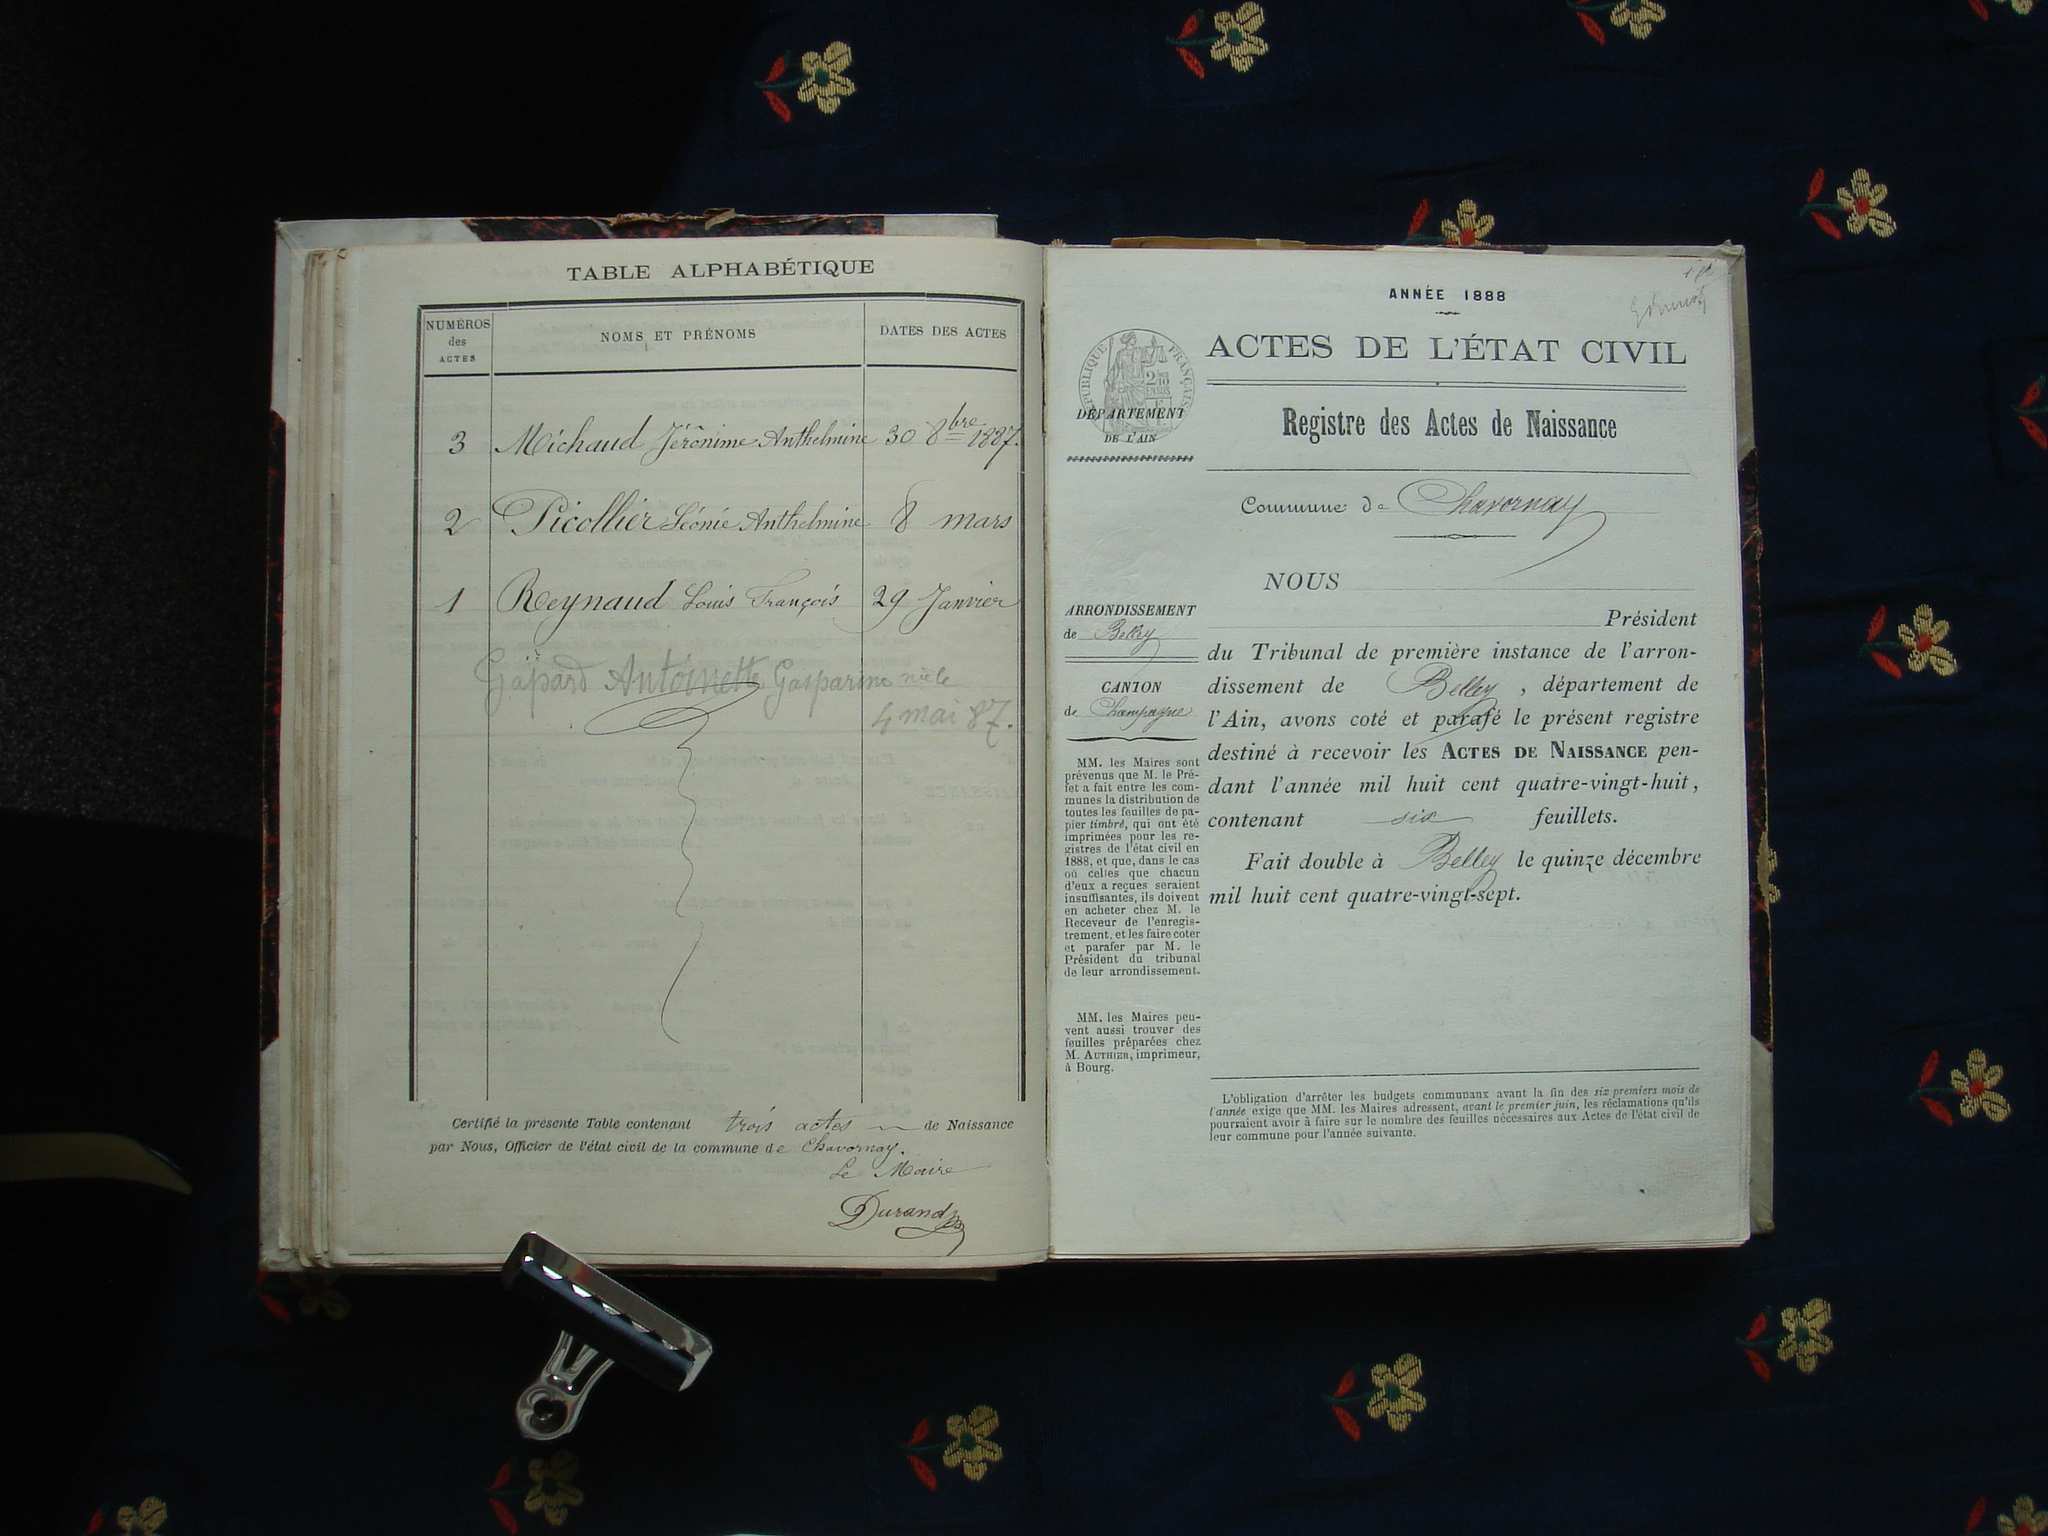 TABLE ALPHABÉTIQUE
NUMÉROS des ACTES
NOMS ET PRÉNOMS
DATES DES ACTES
3 Michaud Jérônime Anthelmine 30 8bre 1887.
2 Picollier Léonie Anthelmine 8 mars
1 Reynaud Louis François 29 Janvier
Gaspard Antoinette Gasparine née le
4 mai 87.
Certifié la présente Table contenant trois actes de Naissance
par Nous, Officier de l'état civil de la commune de Chavornay.
Le Maire
Durand
ANNÉE 1888
ACTES DE L'ÉTAT CIVIL
RÉPUBLIQUE FRANÇAISE
DÉPARTEMENT
DE L'AIN
Registre des Actes de Naissance
Commune de Chavornay
ARRONDISSEMENT
de Belley
CANTON
de Champagne
MM. les Maires sont
prévenus que M. le Pré-
fet a fait entre les com-
munes la distribution de
toutes les feuilles de pa-
pier timbré, qui ont été
imprimées pour les re-
gistres de l'état civil en
1888, et que, dans le cas
où celles que chacun
d'eux a reçues seraient
insuffisantes, ils doivent
en acheter chez M. le
Receveur de l'enregis-
trement, et les faire coter
et parafer par M. le
Président du tribunal
de leur arrondissement.
MM. les Maires peu-
vent aussi trouver des
feuilles préparées chez
M. AUTHIER, imprimeur,
à Bourg.
NOUS
Président
du Tribunal de première instance de l'arron-
dissement de Belley, département de
l'Ain, avons coté et parafé le présent registre
destiné à recevoir les ACTES DE NAISSANCE pen-
dant l'année mil huit cent quatre-vingt-huit,
contenant six feuillets.
Fait double à Belley le quinze décembre
mil huit cent quatre-vingt-sept.
L'obligation d'arrêter les budgets communaux avant la fin des six premiers mois de
l'année exige que MM. les Maires adressent, avant le premier juin, les réclamations qu'ils
pourraient avoir à faire sur le nombre des feuilles nécessaires aux Actes de l'état civil de
leur commune pour l'année suivante.